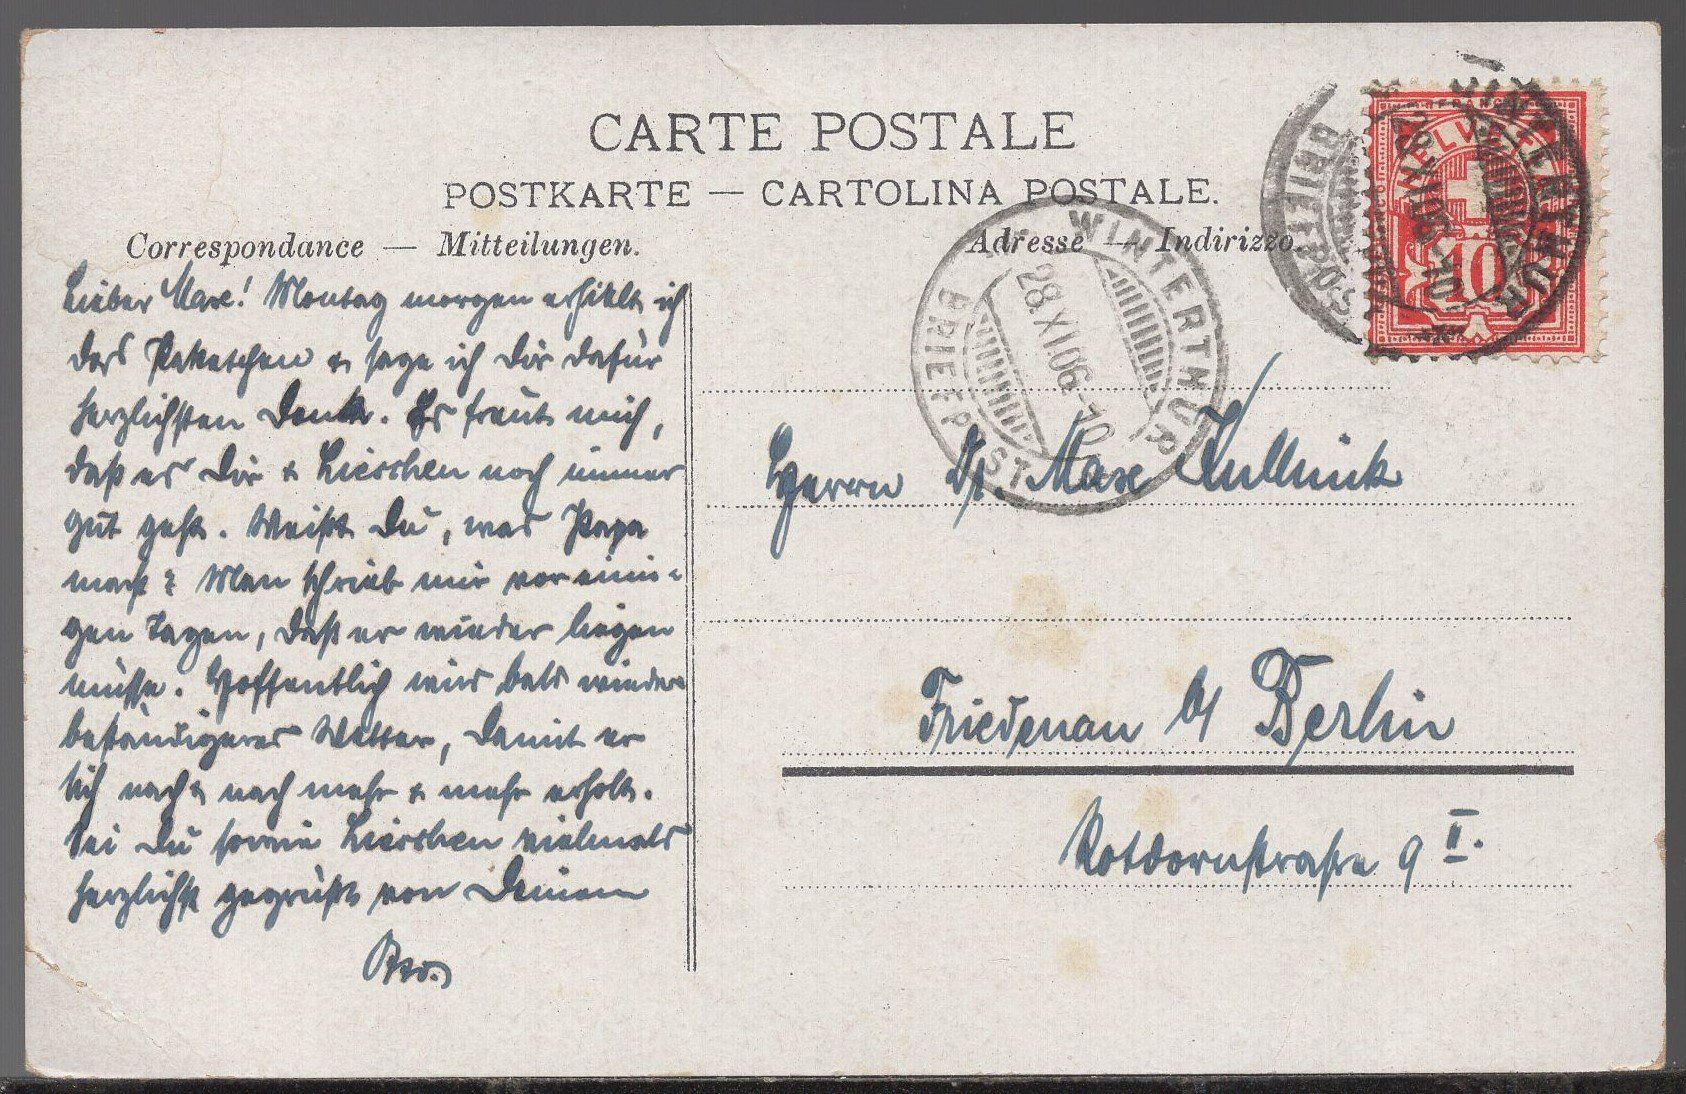 CARTE POSTALE
POSTKARTE — CARTOLINA POSTALE.
Correspondance — Mitteilungen.
Lieber Max! Montag morgen erhielt ich
das Paketchen & sage ich Dir dafür
herzlichsten Dank. Es freut mich,
daß es Dir & Lieschen noch immer
gut geht. Weißt Du, was Papa
macht? Man schrieb mir vor eini-
gen Tagen, daß er wieder liegen
müsse. Hoffentlich wirds bald wieder
beständigeres Wetter, damit er
sich nach & nach mehr & mehr erholt.
Sei Du sowie Lieschen vielmals
herzlichst gegrüßt von Deinem
Adresse — Indirizzo.
WINTERTHUR
28.XI.06.-10
BRIEFPOST
WINTERTHUR
28.XI.06.
BRIEFPOST
FRANCO
HELVETIA
10
Herrn Dr. Max
Friedenau b/ Berlin
Rotdornstraße 9 II.